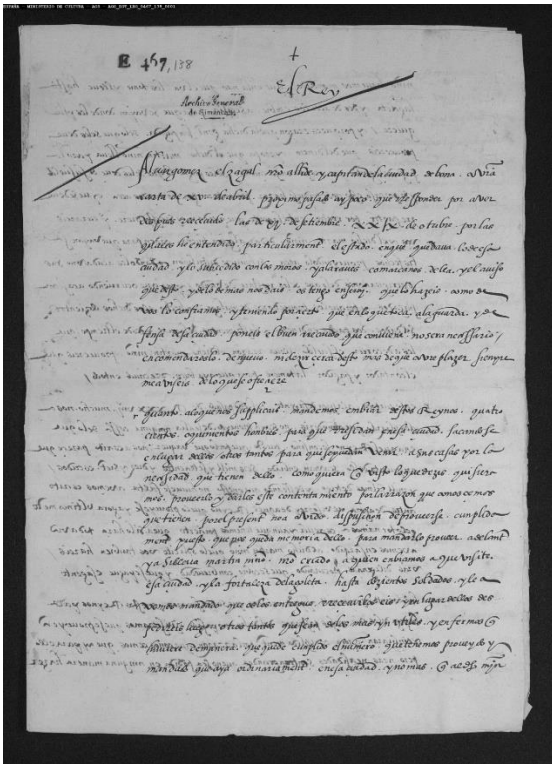 ESPAÑA - MINISTERIO DE CULTURA
E 467, 138
+
el Rey
Archivo General
de Simancas
Alvar gomez el zagal nro alcaide y capitan de la ciudad de bona a vra
carta de de abril proximo pasado ay poco que responder por aver
despues rrecevido las de de setiembre y XXIX de otubre por las
quales he entendido particularment el estado en que quedava lo de esa
ciudad y lo subcedido con los moros y alaraves comarcanos de lea y el aviso
que desto y de lo demas nos dais os tengo en servi que lo hazeis como de
vos lo confiamos y teniendo por cierto que en lo que toca a la guarda y de
fensa desa ciudad porneis el buen rrecaudo que conviene no sera necessario
encomendaroslo de nuevo ni dezir cerca desto mas de que avre plazer siempre
me aviseis de lo que se ofreciere
quanto a lo que nos supplicais mandemos embiar destos Reynos quatro
cientos o quinientos hombres para que rresidan en esa ciudad sacandose
en lugar dellos otros tantos para que se puedan venir a sus casas por la
necesidad que tienen dello como quiera q visto lo que dezis quisiera
mos proveerlo y darles este contentamiento por la rrazon que conoscemos
que tienen por el present no a avido dispusicion de proveerse cumplida
ment puesto que queda memoria dello para mandarlo proveer adelant
ya martin niño nro criado a quien enbiamos a que visite
esa ciudad y la fortaleza de la goleta hasta dozientos soldados y le a
vemos mandado que os los entregue y en lugar dellos des
pedireis luego otros tantos que sean de los mas ynutiles y enfermos q
huviere de manera que quede cumplido el numero que tenemos proveydo y
mandado que aya ordinariament en esa ciudad y no mas q